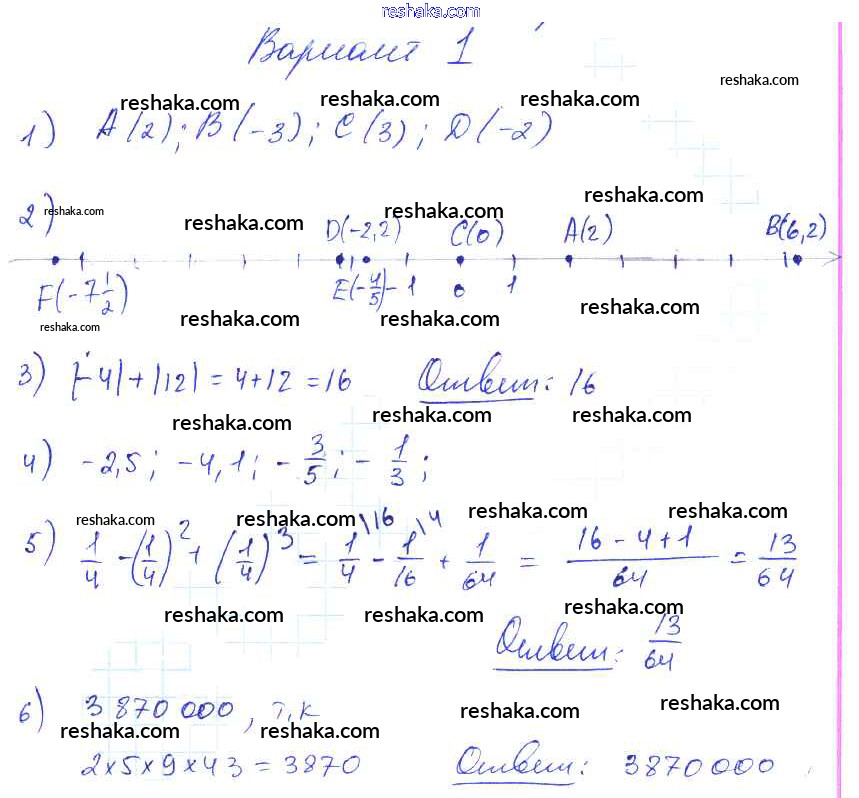 reshaka.com
Вариант 1
reshaka.com
reshaka.com reshaka.com reshaka.com
1) A(2); B(-3); C(3); D(-2)
reshaka.com
2) reshaka.com reshaka.com reshaka.com
D(-2,2) C(0) A(2) B(6,2)
F(-7 1/2) E(-4/5) -1 0 1
reshaka.com reshaka.com reshaka.com reshaka.com
3) |-4|+|12| = 4+12 = 16 Ответ: 16
reshaka.com reshaka.com reshaka.com
4) -2,5; -4,1; -3/5; -1/3;
reshaka.com reshaka.com reshaka.com reshaka.com
5) 1/4 - (1/4)² + (1/4)³ = 1/4\16 - 1/16\4 + 1/64 = (16-4+1)/64 = 13/64
reshaka.com reshaka.com reshaka.com
Ответ: 13/64
6) 3 870 000, т.к
reshaka.com reshaka.com reshaka.com reshaka.com
2×5×9×43 = 3870 Ответ: 3870000